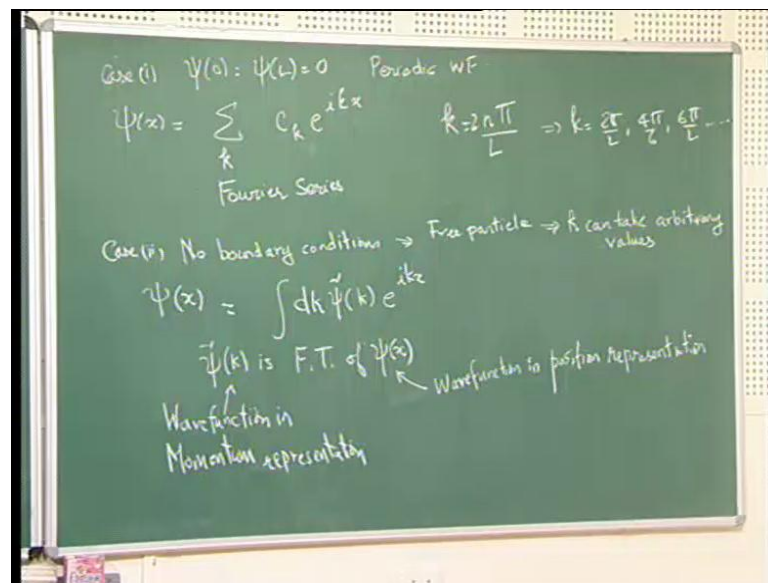 Case(i) ψ(0) = ψ(L) = 0 Periodic WF
ψ(x) = ∑ₖ cₖ e^{ikx} k = 2nπ/L ⇒ k = 2π/L, 4π/L, 6π/L ....
Fourier Series
Case(ii) No boundary conditions → Free particle → k can take arbitrary
values
ψ(x) = ∫ dk ψ̃(k) e^{ikx}
ψ̃(k) is F.T. of ψ(x) Wavefunction in position representation
Wavefunction in
Momentum representation